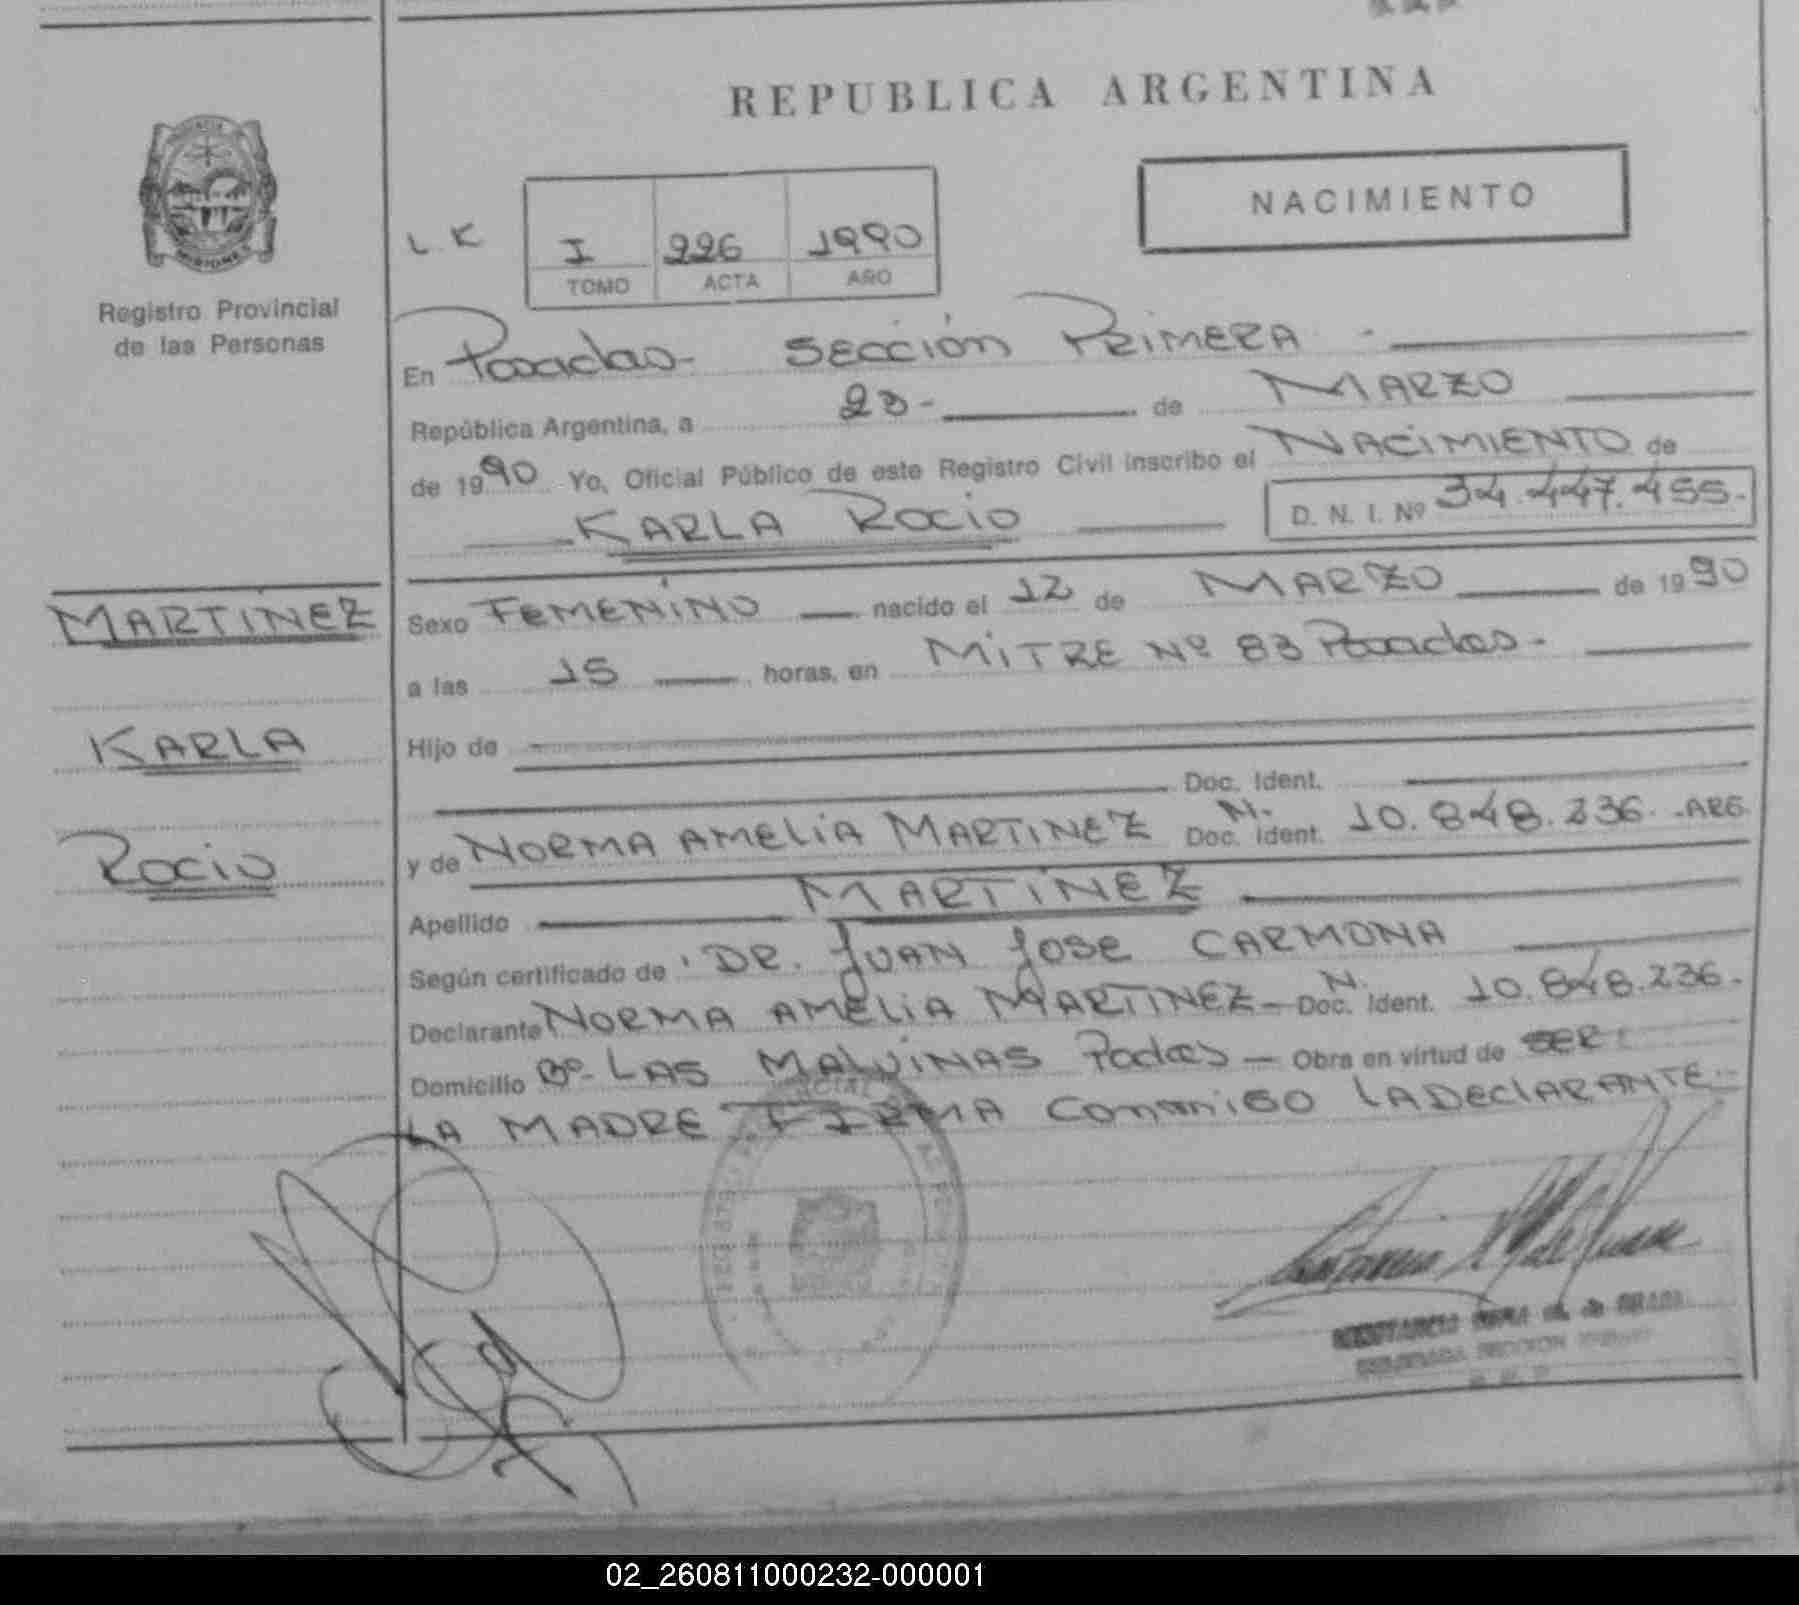 REPUBLICA ARGENTINA
NACIMIENTO
L. K I 226 1990
TOMO ACTA AÑO
Registro Provincial
de las Personas
En Posadas- SECCIÓN PRIMERA -
República Argentina, a 23- de MARZO
de 1990 Yo, Oficial Público de este Registro Civil inscribo el NACIMIENTO de
KARLA ROCIO D. N. I. Nº 34.447.455-
MARTINEZ
KARLA
ROCIO
Sexo FEMENINO nacido el 12 de MARZO de 1990
a las 15 horas, en MITRE Nº 83 Posadas-
Hijo de
Doc. Ident.
y de NORMA AMELIA MARTINEZ Doc. N. Ident. 10.848.236. -ARG.
Apellido MARTINEZ
Según certificado de DR. JUAN JOSE CARMONA
Declarante NORMA AMELIA MARTINEZ- Doc. N. Ident. 10.848.236-
Domicilio Bº- LAS MALVINAS Podas - Obra en virtud de SER
LA MADRE FIRMA Conmigo LA DEClARANTE-
02_260811000232-000001